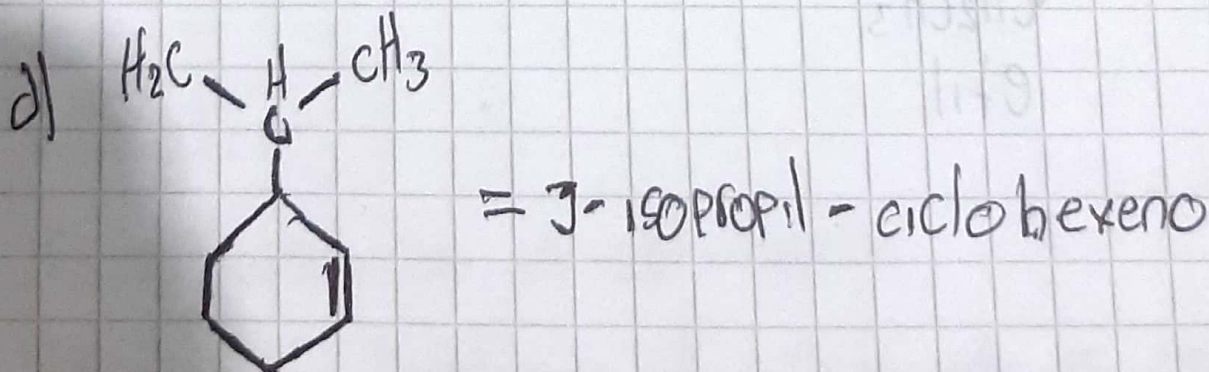 d) H₂C H CH₃
C
= 3-isopropil-ciclohexeno